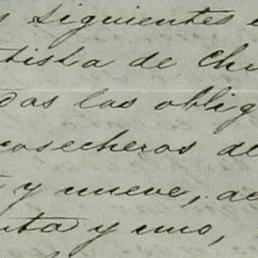 siguientes
tista de Chi
das las oblig
cosecheros de
y nueve,
nta y uno,